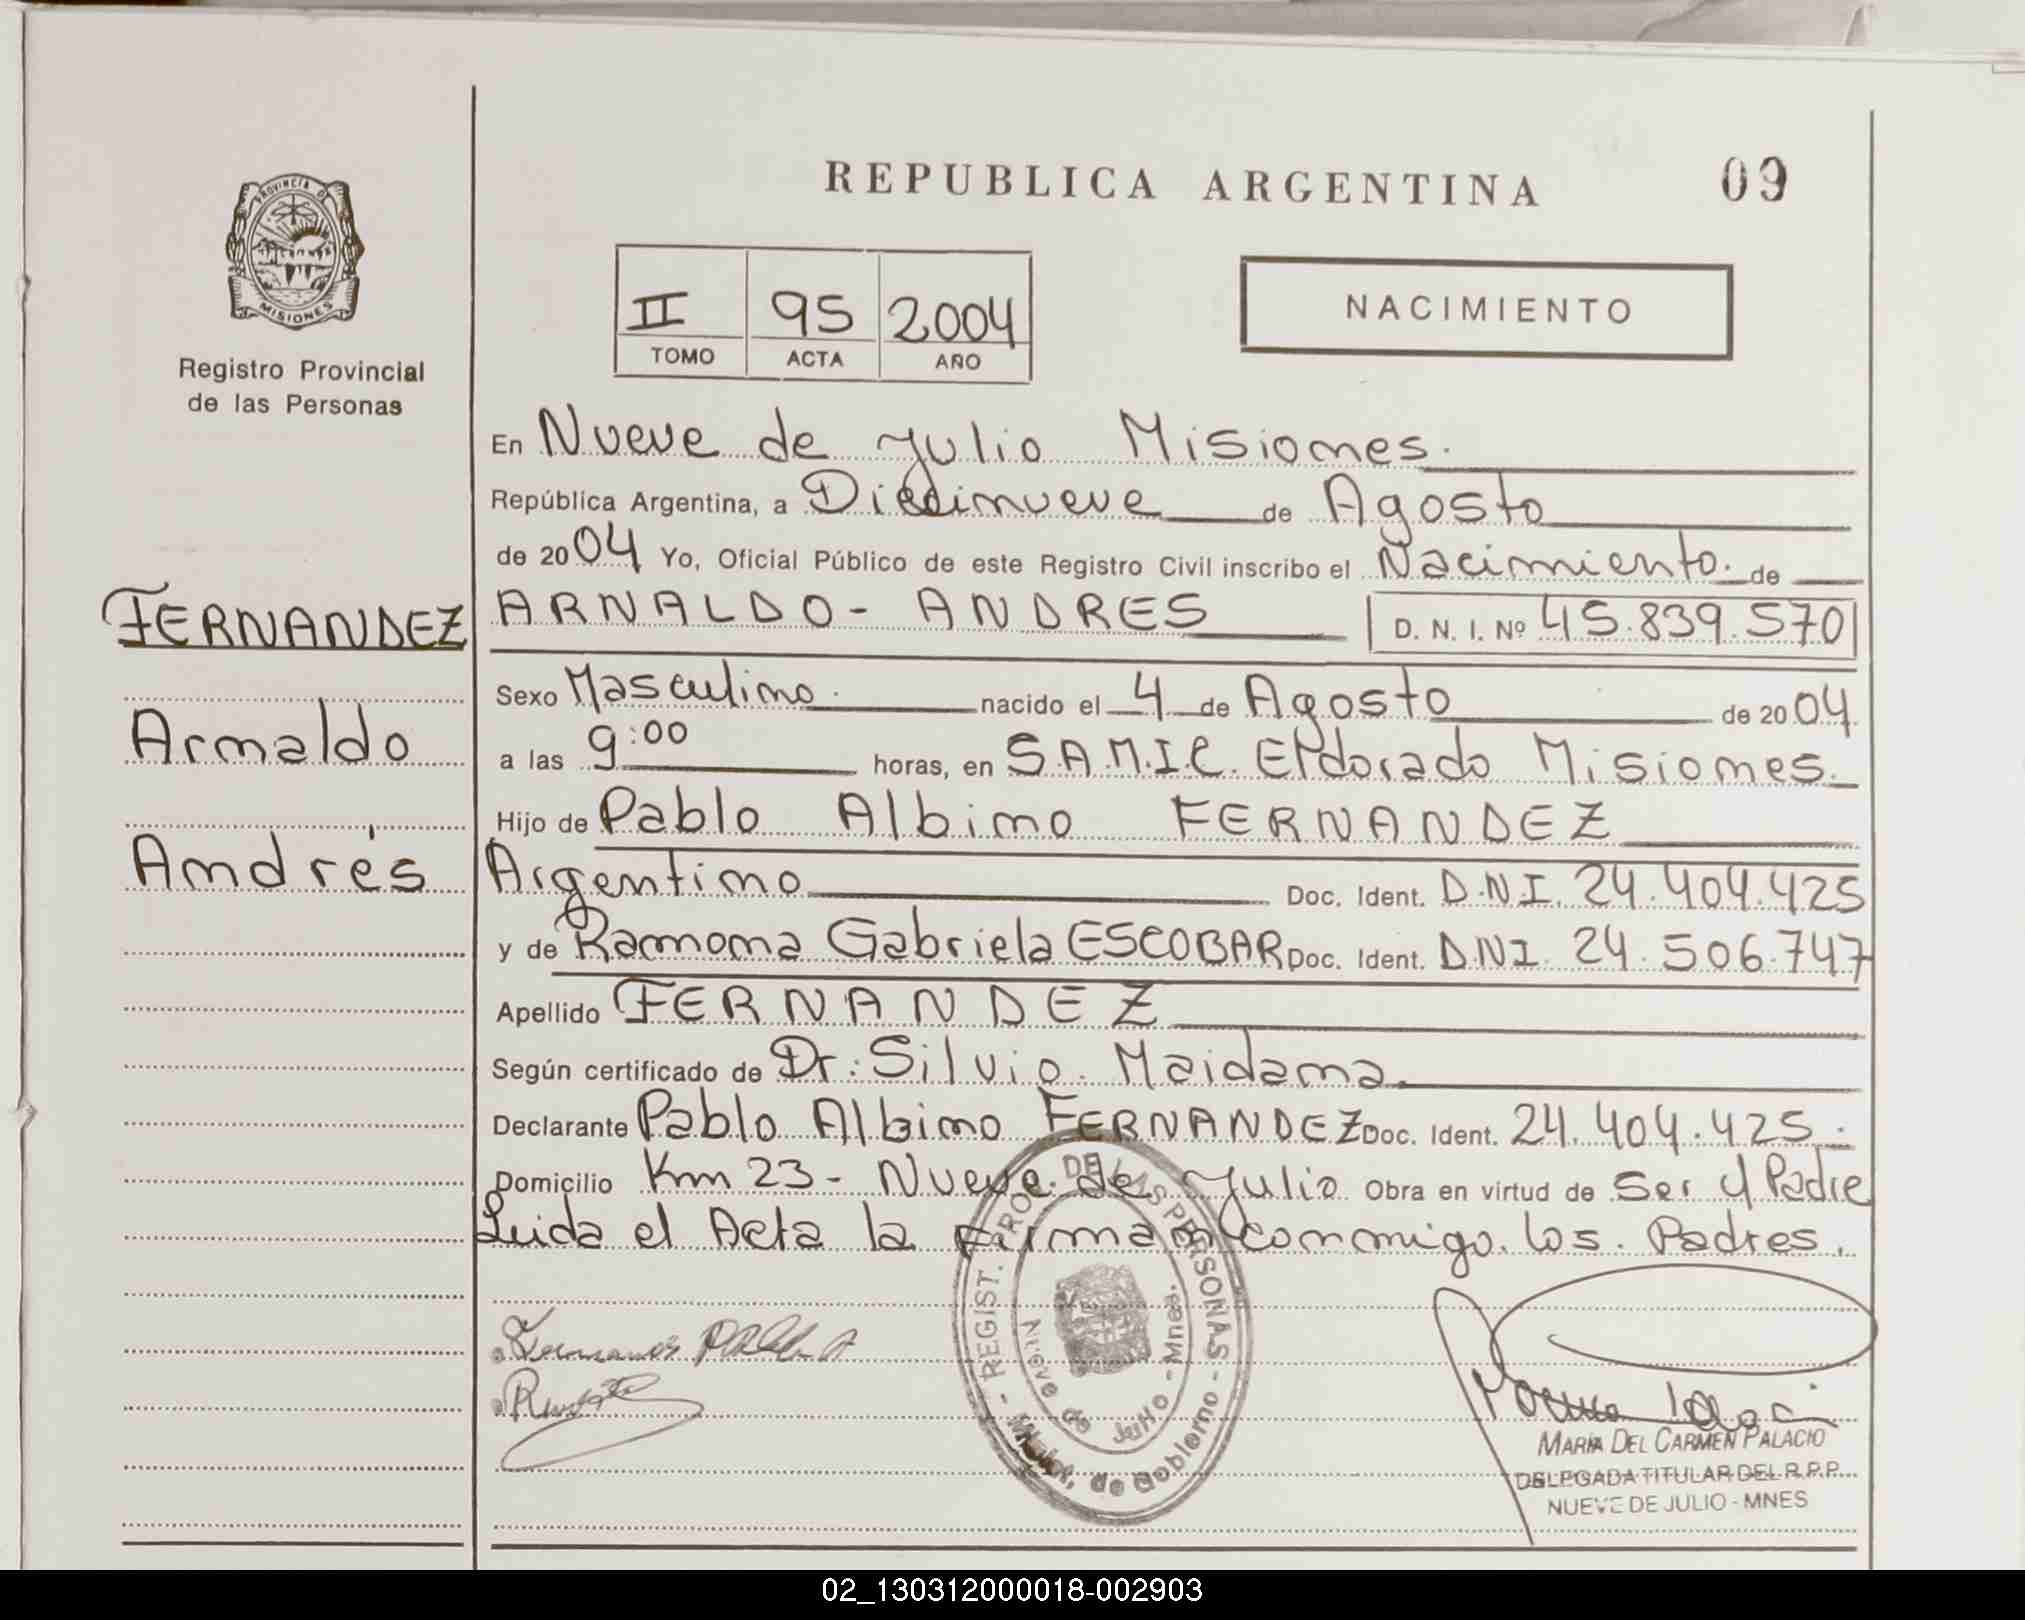 REPUBLICA ARGENTINA
09
PROVINCIA DE
MISIONES
Registro Provincial
de las Personas
II 95 2004
TOMO ACTA AÑO
NACIMIENTO
En Nueve de Julio Misiones.
República Argentina, a Diecinueve de Agosto
de 2004 Yo, Oficial Público de este Registro Civil inscribo el Nacimiento. de
FERNANDEZ
ARNALDO - ANDRES D. N. I. Nº 45.839.570
Sexo Masculino. nacido el 4 de Agosto de 2004.
Arnaldo
a las 9:00 horas, en S.A.M.I.C. Eldorado Misiones.
Hijo de Pablo Albino FERNANDEZ
Andrés
Argentino Doc. Ident. D.N.I. 24.404.425
y de Ramona Gabriela ESCOBAR Doc. Ident. D.N.I. 24.506.747
Apellido FERNANDEZ
Según certificado de Dr: Silvio Maidana
Declarante Pablo Albino FERNANDEZ Doc. Ident. 24.404.425.
Domicilio Km 23 - Nueve de Julio Obra en virtud de Ser el Padre
Leida el Acta la firman conmigo los Padres.
- REGIST. PROV. DE LAS PERSONAS -
Minist. de Gobierno
Nueve de Julio - Mnes.
MARÍA DEL CARMEN PALACIO
DELEGADA TITULAR DEL R.P.P.
NUEVE DE JULIO - MNES
02_130312000018-002903